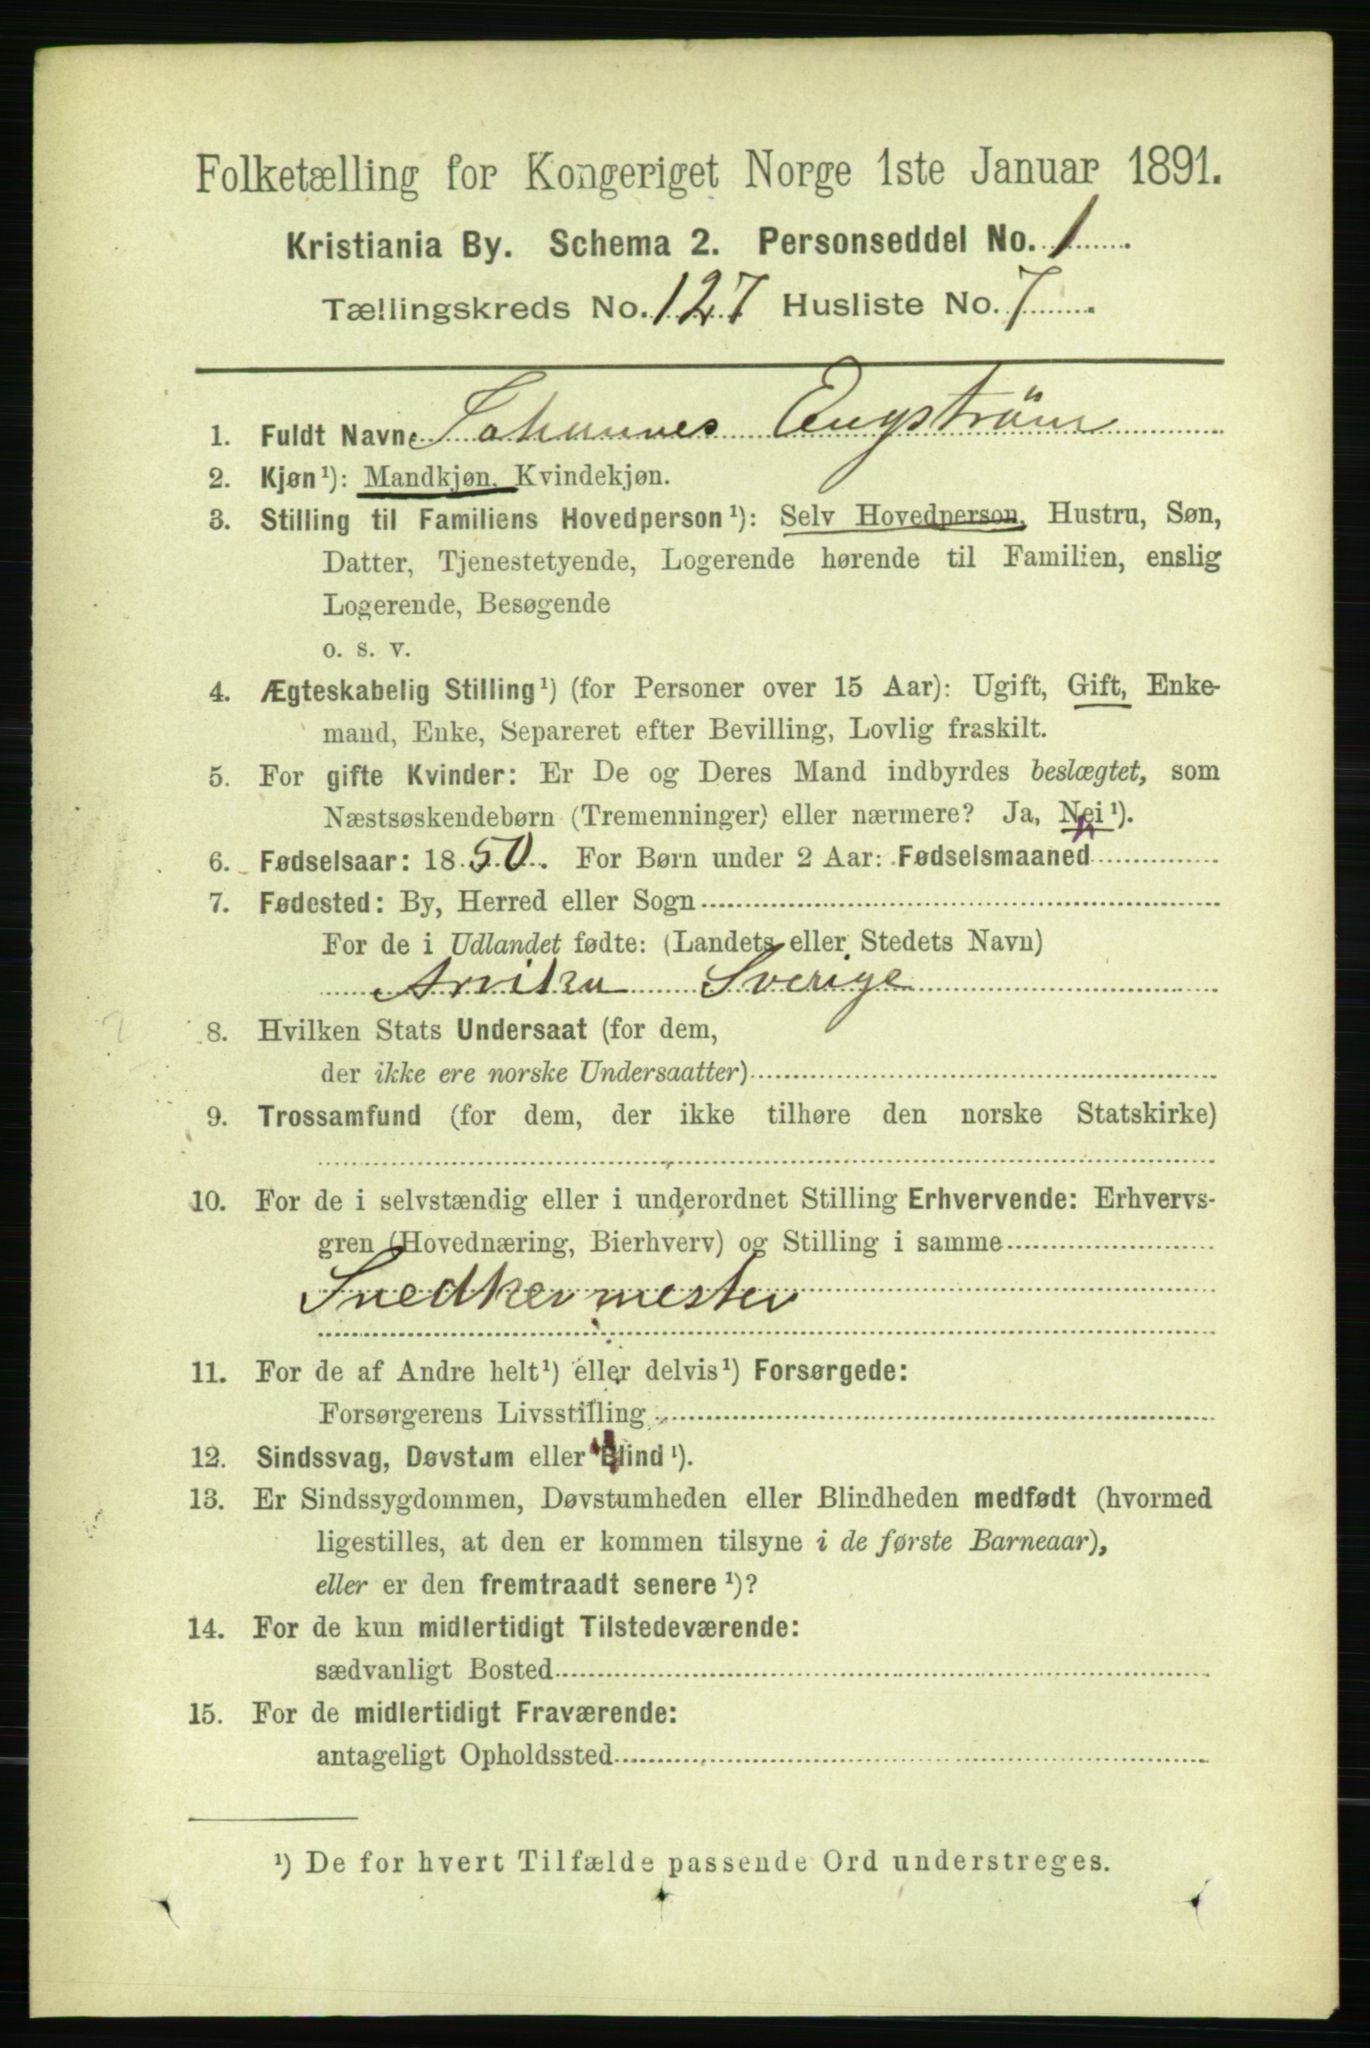 Folketælling for Kongeriget Norge 1ste Januar 1891.
Kristiania By. Schema 2. Personseddel No. 1
Tællingskreds No. 127 Husliste No. 7
1. Fuldt Navn: Johannes Engström
2. Kjøn ¹): Mandkjøn, Kvindekjøn.
3. Stilling til Familiens Hovedperson ¹): Selv Hovedperson, Hustru, Søn,
Datter, Tjenestetyende, Logerende hørende til Familien, enslig
Logerende, Besøgende
o. s. v.
4. Ægteskabelig Stilling ¹) (for Personer over 15 Aar): Ugift, Gift, Enke-
mand, Enke, Separeret efter Bevilling, Lovlig fraskilt.
5. For gifte Kvinder: Er De og Deres Mand indbyrdes beslægtet, som
Næstsøskendebørn (Tremenninger) eller nærmere? Ja, Nei ¹).
6. Fødselsaar: 1850. For Børn under 2 Aar: Fødselsmaaned
7. Fødested: By, Herred eller Sogn
For de i Udlandet fødte: (Landets eller Stedets Navn)
Arvika Sverige
8. Hvilken Stats Undersaat (for dem,
der ikke ere norske Undersaatter)
9. Trossamfund (for dem, der ikke tilhøre den norske Statskirke)
10. For de i selvstændig eller i underordnet Stilling Erhvervende: Erhvervs-
gren (Hovednæring, Bierhverv) og Stilling i samme
Snedkermester
11. For de af Andre helt ¹) eller delvis ¹) Forsørgede:
Forsørgerens Livsstilling
12. Sindssvag, Døvstum eller Blind ¹).
13. Er Sindssygdommen, Døvstumheden eller Blindheden medfødt (hvormed
ligestilles, at den er kommen tilsyne i de første Barneaar),
eller er den fremtraadt senere ¹)?
14. For de kun midlertidigt Tilstedeværende:
sædvanligt Bosted
15. For de midlertidigt Fraværende:
antageligt Opholdssted
¹) De for hvert Tilfælde passende Ord understreges.